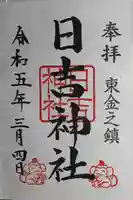 奉拝 東金之鎮
日吉神社
令和五年三月四日